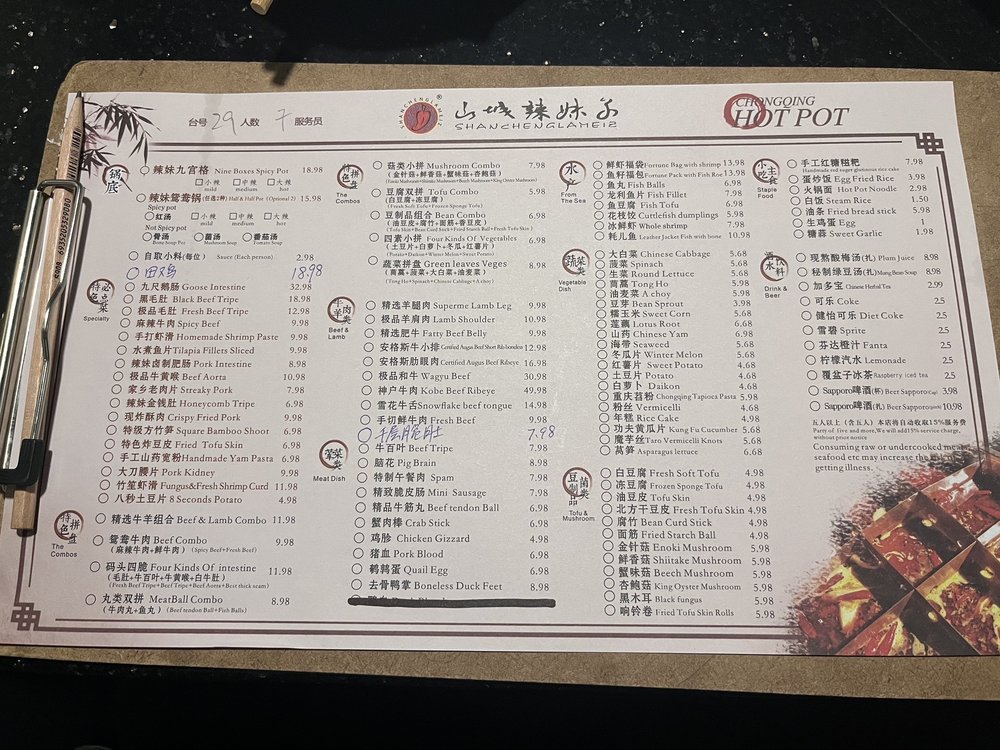 SHANCHENGLAMEIZ
®
山城辣妹子
SHANCHENGLAMEIZ
CHONGQING
HOT POT
台号 29 人数 7 服务员
锅底
辣妹九宫格 Nine Boxes Spicy Pot 18.98
小辣 中辣 大辣
mild medium hot
辣妹鸳鸯锅(任选2种) Half & Half Pot (Optional 2) 15.98
Spicy pot
红汤 小辣 中辣 大辣
mild medium hot
Not Spicy pot
骨汤 菌汤 番茄汤
Bone Soup Pot Mushroom Soup Tomato Soup
自取小料(每位) Sauce (Each person) 2.98
田鸡 18.98
特色必点菜
Specialty
九尺鹅肠 Goose Intestine 32.98
黑毛肚 Black Beef Tripe 18.98
极品毛肚 Fresh Beef Tripe 12.98
麻辣牛肉 Spicy Beef 9.98
手打虾滑 Homemade Shrimp Paste 9.98
水煮鱼片 Tilapia Fillets Sliced 9.98
辣妹卤制肥肠 Pork Intestine 8.98
极品牛黄喉 Beef Aorta 10.98
家乡老肉片 Streaky Pork 7.98
辣妹金钱肚 Honeycomb Tripe 6.98
现炸酥肉 Crispy Fried Pork 9.98
特级方竹笋 Square Bamboo Shoot 6.98
特色炸豆皮 Fried Tofu Skin 6.98
手工山药宽粉 Handmade Yam Pasta 6.98
大刀腰片 Pork Kidney 9.98
竹笙虾滑 Fungus&Fresh Shrimp Curd 11.98
八秒土豆片 8 Seconds Potato 4.98
特色拼盘
The Combos
精选牛羊组合 Beef & Lamb Combo 11.98
鸳鸯牛肉 Beef Combo 9.98
(麻辣牛肉+鲜牛肉) (Spicy Beef+Fresh Beef)
码头四脆 Four Kinds Of intestine 11.98
(毛肚+牛百叶+牛黄喉+白牛肚)
(Fresh Beef Tripe+Beef Tripe+Beef Aorta+Beef thick seam)
丸类双拼 MeatBall Combo 8.98
(牛肉丸+鱼丸) (Beef tendon Ball+Fish Balls)
特色拼盘
The Combos
菇类小拼 Mushroom Combo 7.98
(金针菇+鲜香菇+蟹味菇+杏鲍菇)
(Enoki Mushroom+Shiitake Mushroom+Beech Mushroom+King Oyster Mushroom)
豆腐双拼 Tofu Combo 5.98
(白豆腐+冻豆腐)
(Fresh Soft Tofu+Frozen Sponge Tofu)
豆制品组合 Bean Combo 6.98
(油豆皮+腐竹+面筋+香豆皮)
(Tofu Skin+Bean Curd Stick+Fried Starch Ball+Fresh Tofu Skin)
四素小拼 Four Kinds Of Vegetables 6.98
(土豆片+白萝卜+冬瓜+红薯片)
(Potato+Daikon+Winter Melon+Sweet Potato)
蔬菜拼盘 Green leaves Veges 8.98
(茼蒿+菠菜+大白菜+油麦菜)
(Tong Ho+Spinach+Chinese Cabbage+A choy)
牛羊肉类
Beef & Lamb
精选羊腿肉 Superme Lamb Leg 9.98
极品羊肩肉 Lamb Shoulder 10.98
精选肥牛 Fatty Beef Belly 9.98
安格斯牛小排 Certified Augus Beef Short Rib boneless 12.98
安格斯肋眼肉 Certified Augus Beef Ribeye 16.98
极品和牛 Wagyu Beef 30.98
神户牛肉 Kobe Beef Ribeye 49.98
雪花牛舌 Snowflake beef tongue 14.98
手切鲜牛肉 Fresh Beef 9.98
千层脆肚 7.98
荤菜类
Meat Dish
牛百叶 Beef Tripe 7.98
脑花 Pig Brain 8.98
特制午餐肉 Spam 7.98
精致脆皮肠 Mini Sausage 7.98
精品牛筋丸 Beef tendon Ball 6.98
蟹肉棒 Crab Stick 6.98
鸡胗 Chicken Gizzard 4.98
猪血 Pork Blood 6.98
鹌鹑蛋 Quail Egg 6.98
去骨鸭掌 Boneless Duck Feet 8.98
水产
From The Sea
鲜虾福袋 Fortune Bag with shrimp 13.98
鱼籽福包 Fortune Pack with Fish Roe 13.98
鱼丸 Fish Balls 6.98
龙利鱼片 Fish Fillet 7.98
鱼豆腐 Fish Tofu 6.98
花枝饺 Cuttlefish dumplings 5.98
冰鲜虾 Whole shrimp 7.98
耗儿鱼 Leather Jacket Fish with bone 10.98
蔬菜类
Vegetable Dish
大白菜 Chinese Cabbage 5.68
菠菜 Spinach 5.68
生菜 Round Lettuce 5.68
茼蒿 Tong Ho 5.68
油麦菜 A choy 5.68
豆芽 Bean Sprout 3.98
糯玉米 Sweet Corn 5.68
莲藕 Lotus Root 6.68
山药 Chinese Yam 6.98
海带 Seaweed 5.68
冬瓜片 Winter Melon 5.68
红薯片 Sweet Potato 4.68
土豆片 Potato 4.68
白萝卜 Daikon 4.68
重庆苕粉 Chongqing Tapioca Pasta 5.98
粉丝 Vermicelli 4.68
年糕 Rice Cake 4.98
功夫黄瓜片 Kung Fu Cucumber 5.68
魔芋丝 Taro Vermicelli Knots 5.68
莴笋 Asparagus lettuce 6.68
豆制品菌类
Tofu & Mushroom
白豆腐 Fresh Soft Tofu 4.98
冻豆腐 Frozen Sponge Tofu 4.98
油豆皮 Tofu Skin 4.98
北方干豆皮 Fresh Tofu Skin 4.98
腐竹 Bean Curd Stick 4.98
面筋 Fried Starch Ball 4.98
金针菇 Enoki Mushroom 5.98
鲜香菇 Shiitake Mushroom 5.98
蟹味菇 Beech Mushroom 5.98
杏鲍菇 King Oyster Mushroom 5.98
黑木耳 Black fungus 5.98
响铃卷 Fried Tofu Skin Rolls 5.98
小吃主食
Staple Food
手工红糖糍粑 7.98
Handmade red suger glutinous rice cake
蛋炒饭 Egg Fried Rice 3.98
火锅面 Hot Pot Noodle 2.98
白饭 Steam Rice 1.50
油条 Fried bread stick 5.98
生鸡蛋 Egg 1
糖蒜 Sweet Garlic 1.98
酒水饮料
Drink & Beer
现熬酸梅汤(扎) Plum Juice 8.98
秘制绿豆汤(扎) Mung Bean Soup 8.98
加多宝 Chinese Herbal Tea 2.99
可乐 Coke 2.5
健怡可乐 Diet Coke 2.5
雪碧 Sprite 2.5
芬达橙汁 Fanta 2.5
柠檬汽水 Lemonade 2.5
覆盆子冰茶 Raspberry iced tea 2.5
Sapporo啤酒(杯) Beer Sapporo(Cup) 3.98
Sapporo啤酒(扎) Beer Sapporo 10.98
五人以上(含五人)本店将自动收取15%服务费
Party of five and more, We will add15%service charge,
without prior notice
Consuming raw or undercooked meats,
seafood etc may increase the risk
getting illness.
6935205329080